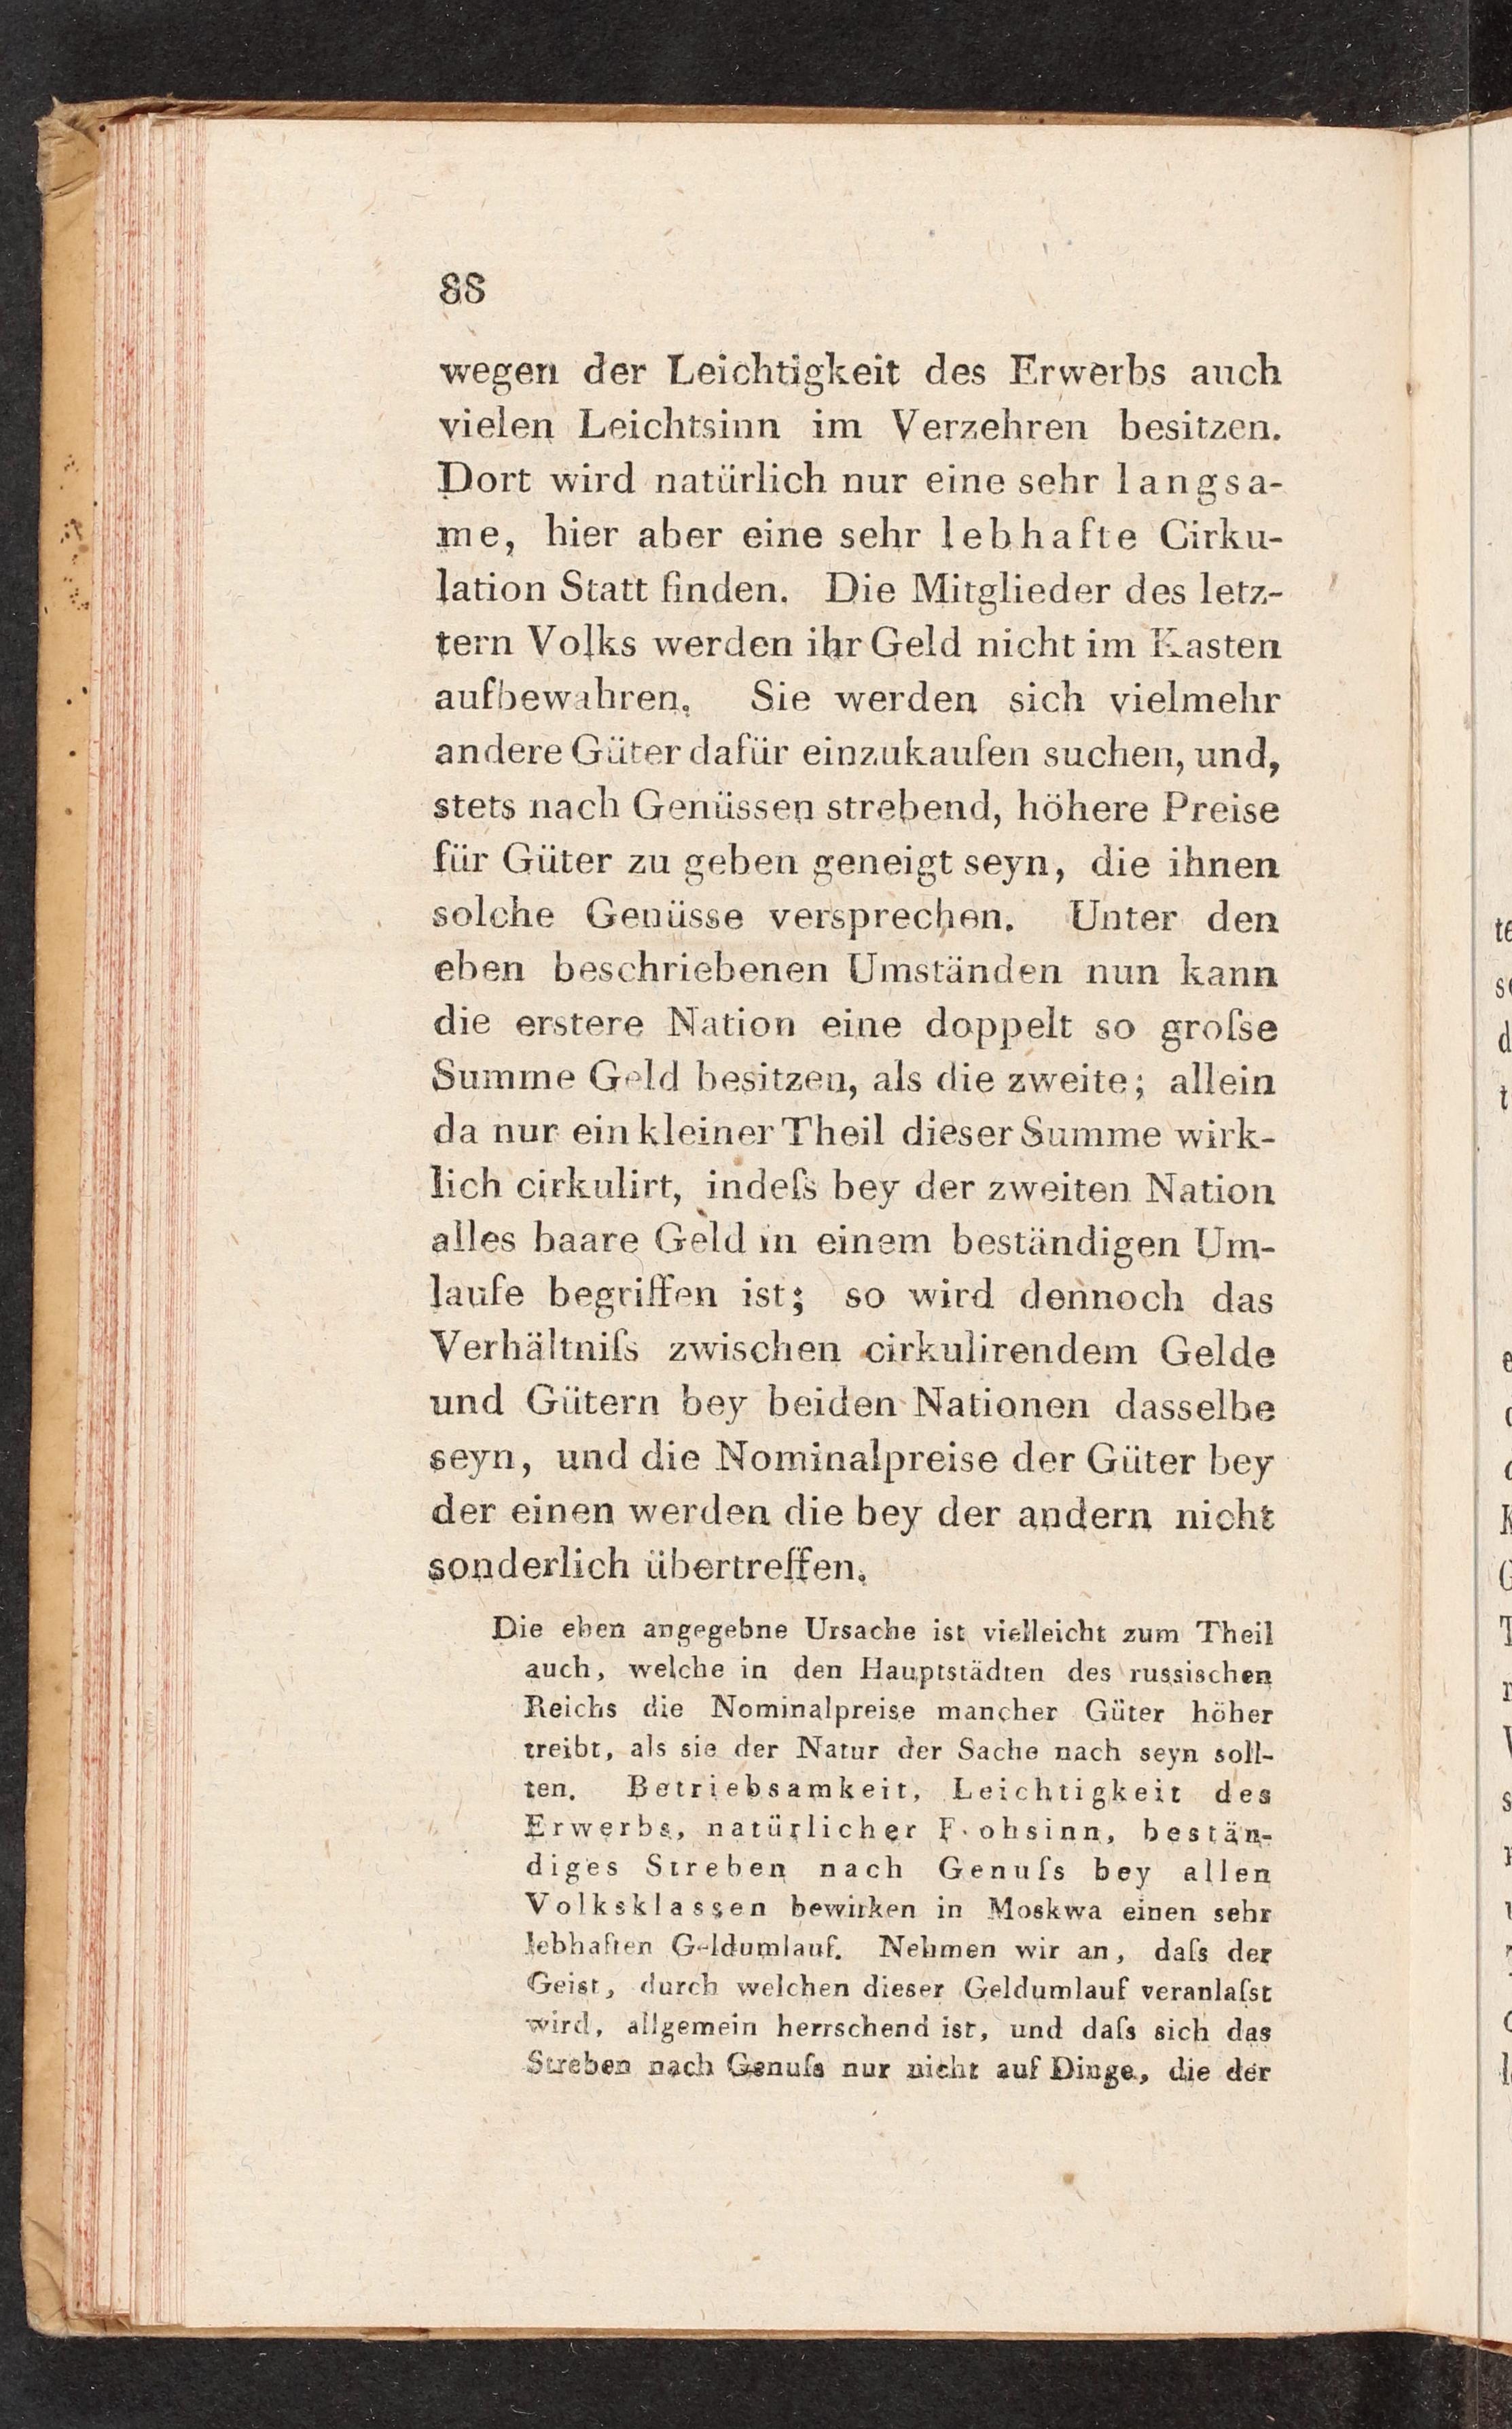 88
wegen der Leichtigkeit des Erwerbs auch
vielen Leichtsinn im Verzehren besitzen.
Dort wird natürlich nur eine sehr langsa-
me, hier aber eine sehr lebhafte Cirku-
lation Statt finden. Die Mitglieder des letz-
tern Volks werden ihr Geld nicht im Kasten
aufbewahren. Sie werden sich vielmehr
andere Güter dafür einzukaufen suchen, und,
stets nach Genüssen strebend, höhere Preise
für Güter zu geben geneigt seyn, die ihnen
solche Genüsse versprechen. Unter den
eben beschriebenen Umständen nun kann
die erstere Nation eine doppelt so groſse
Summe Geld besitzen, als die zweite; allein
da nur ein kleiner Theil dieser Summe wirk-
lich cirkulirt, indeſs bey der zweiten Nation
alles baare Geld in einem beständigen Um-
laufe begriffen ist; so wird dennoch das
Verhältniſs zwischen cirkulirendem Gelde
und Gütern bey beiden Nationen dasselbe
seyn, und die Nominalpreise der Güter bey
der einen werden die bey der andern nicht
sonderlich übertreffen.
Die eben angegebne Ursache ist vielleicht zum Theil
auch, welche in den Hauptstädten des russischen
Reichs die Nominalpreise mancher Güter höher
treibt, als sie der Natur der Sache nach seyn soll-
ten. Betriebsamkeit, Leichtigkeit des
Erwerbs, natürlicher Frohsinn, bestän-
diges Streben nach Genuſs bey allen
Volksklassen bewirken in Moskwa einen sehr
lebhaften Geldumlauf. Nehmen wir an, daſs der
Geist, durch welchen dieser Geldumlauf veranlaſst
wird, allgemein herrschend ist, und daſs sich das
Streben nach Genuſs nur nicht auf Dinge, die der